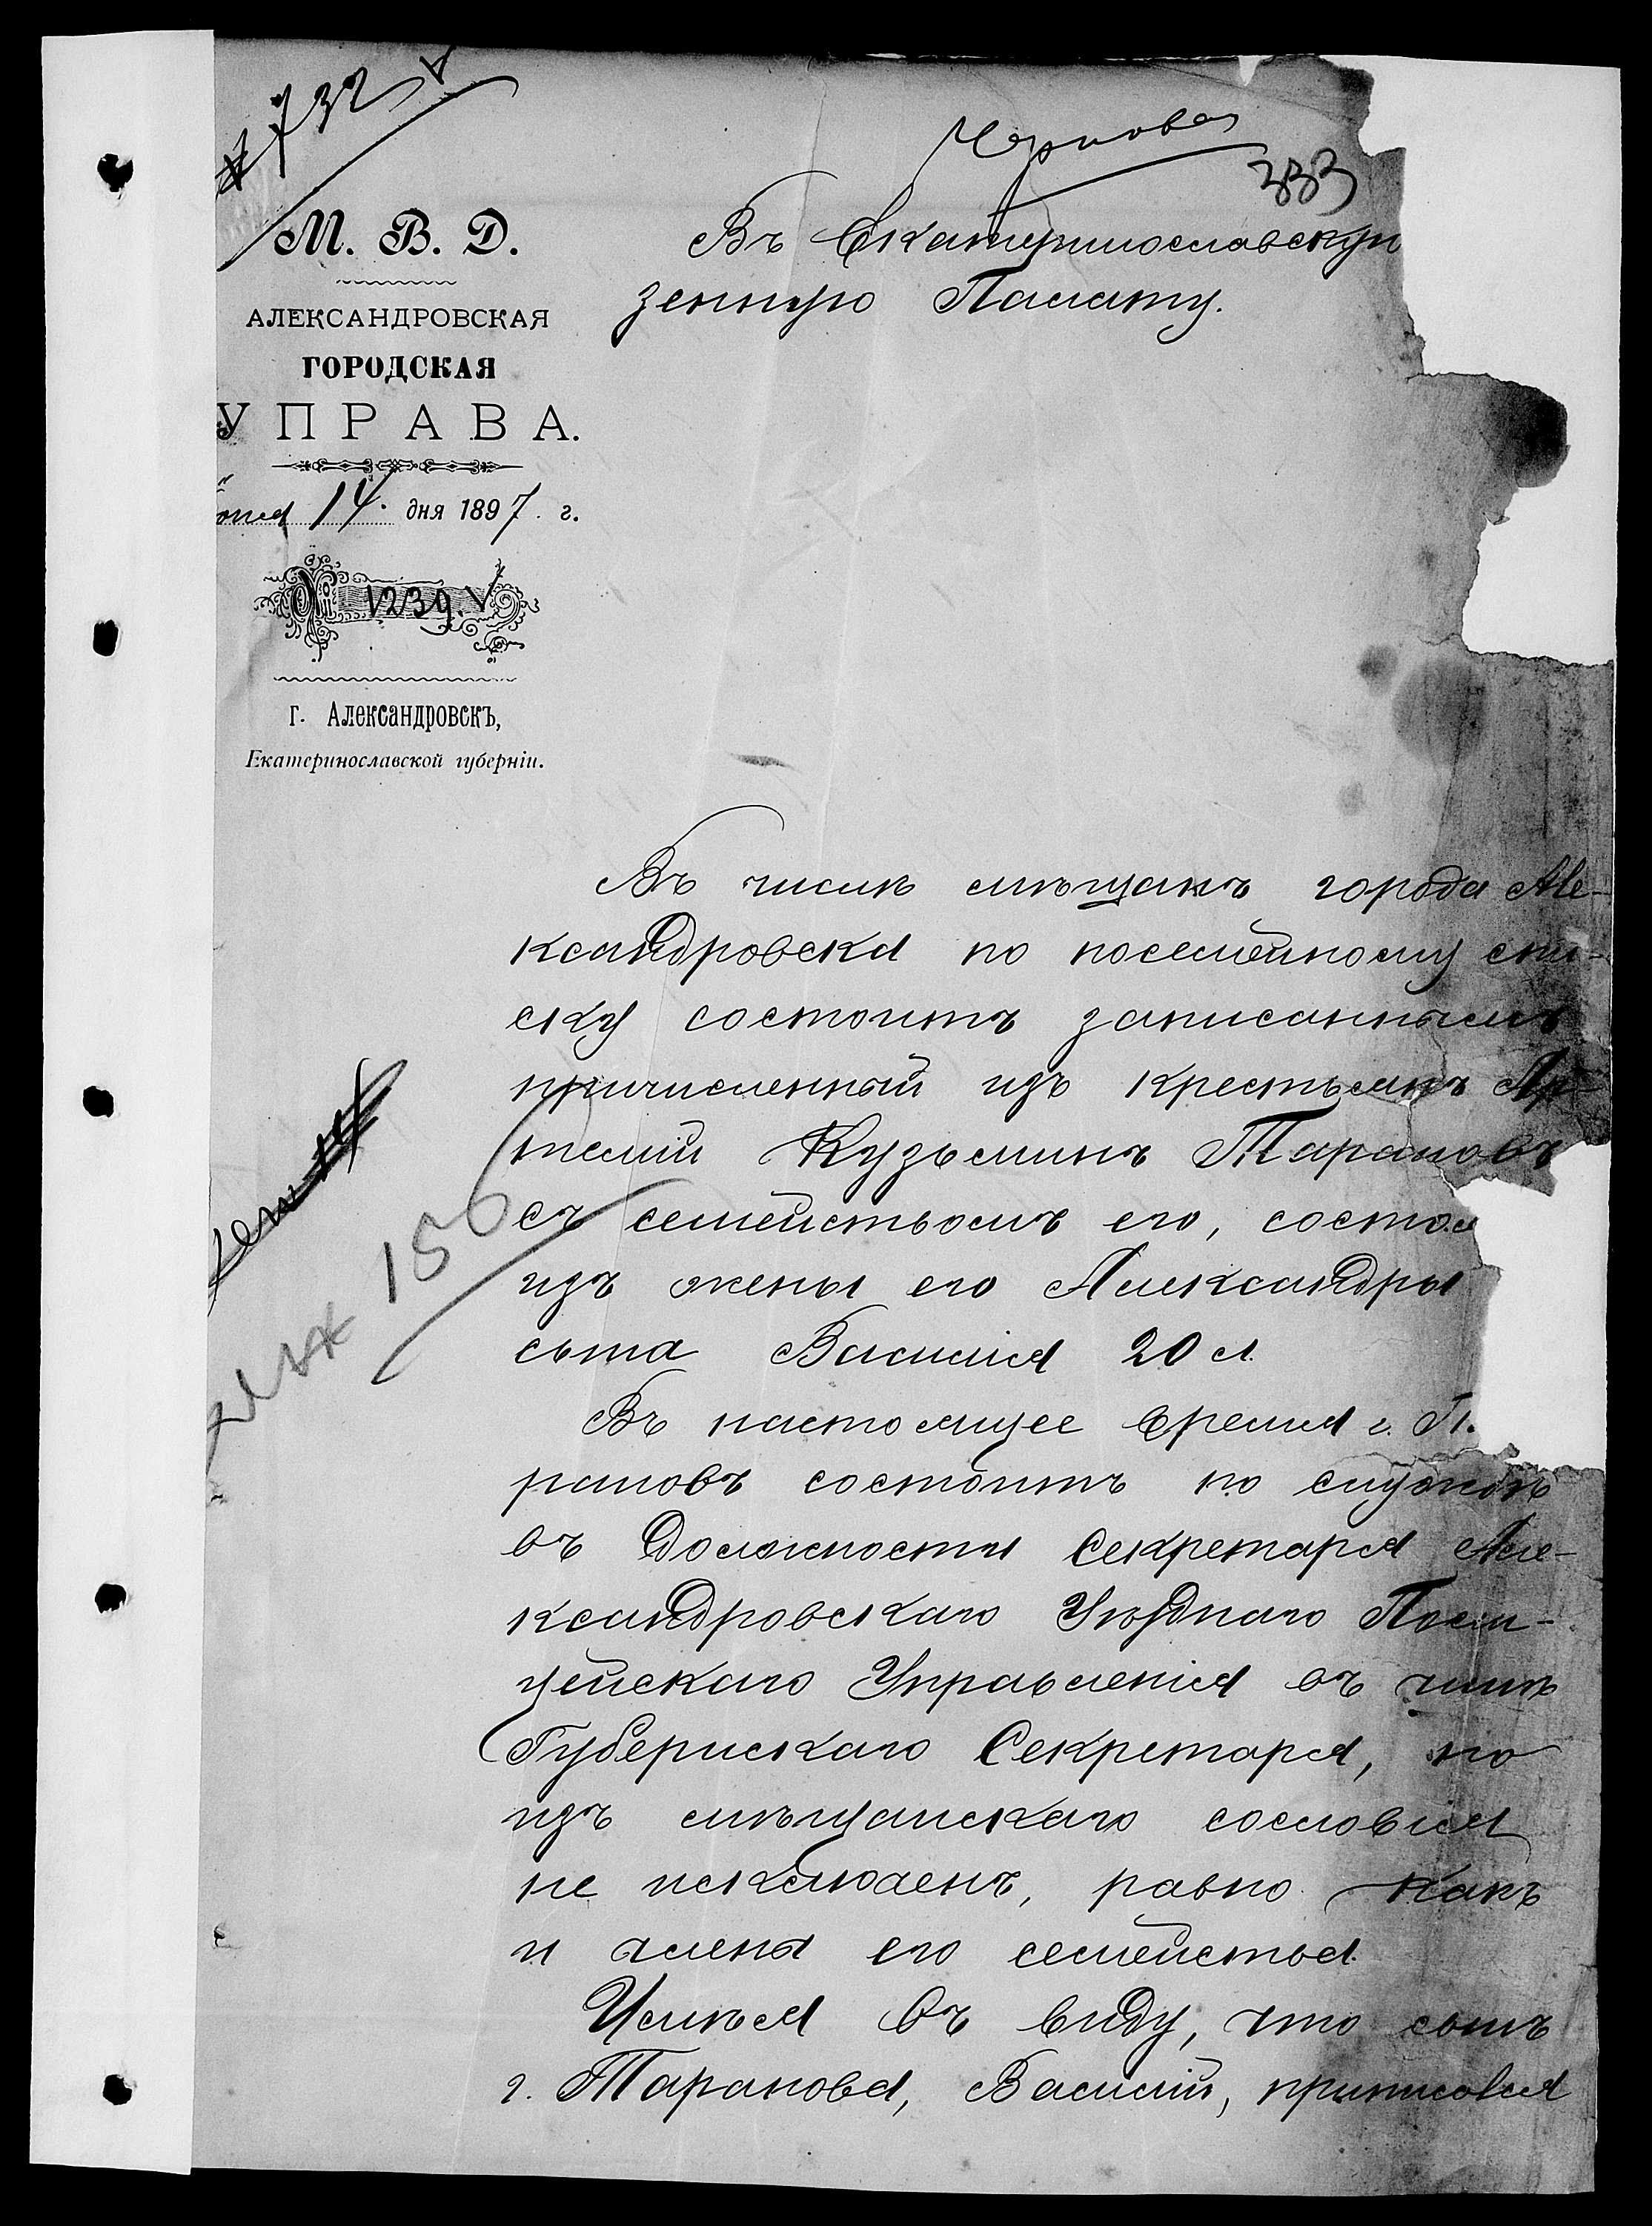 732
Черновая
333
М. В. Д.
АЛЕКСАНДРОВСКАЯ
ГОРОДСКАЯ
УПРАВА.
юня 14. дня 1897. г.
№ 1239.
г. Александровскъ,
Екатеринославской губерніи.
Въ Екатеринославскую
зенную Палату.
Въ числѣ мѣщанъ города Але-
ксандровска по посемейному спи-
ску состоитъ записаннымъ
причисленный изъ крестьянъ Ар-
темій Кузьминъ Тарановъ
съ семействомъ его, состоя
изъ жены его Александры
сына Василія 20 л.
Въ настоящее время г. Т.
рановъ состоитъ по службѣ
въ должности Секретаря Але-
ксандровскаго Уѣзднаго Поли-
цейскаго Управленія въ чинѣ
Губернскаго Секретаря, но
изъ мѣщанскаго сословія
не исключенъ, равно какъ
и члены его семейства.
Имѣя въ виду, что сынъ
г. Таранова, Василій, приписался
156